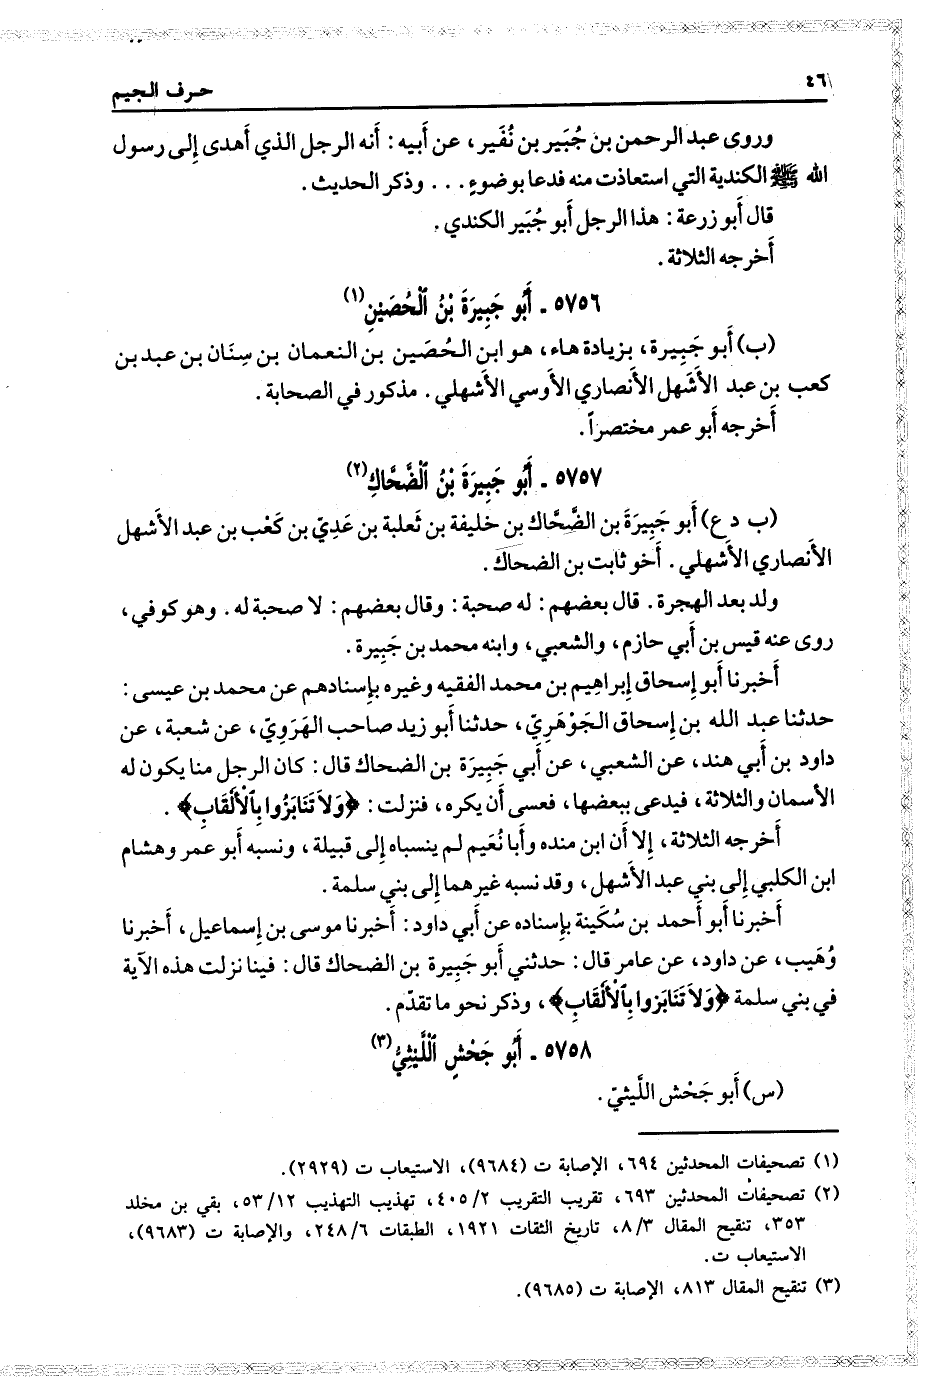 ٤٦
حرف الجيم
وروى عبد الرحمن بن جُبَير بن نُفَير، عن أَبيه: أَنه الرجل الذي أَهدى إِلى رسول
الله ﷺ الكندية التي استعاذت منه فدعا بوضوءٍ... وذكر الحديث.
قال أَبو زرعة: هذا الرجل أَبو جُبَير الكندي.
أَخرجه الثلاثة.
٥٧٥٦ ـ أَبُو جَبِيرَةَ بْنُ ٱلْحُصَيْنِ(١)
(ب) أَبو جَبِيرة، بزيادة هاء، هو ابن الحُصَين بن النعمان بن سِنَان بن عبد بن
كعب بن عبد الأَشهل الأَنصاري الأَوسي الأَشهلي. مذكور في الصحابة.
أَخرجه أَبو عمر مختصراً.
٥٧٥٧ ـ أَبُو جَبِيرَةَ بْنُ ٱلْضَّحَّاكِ(٢)
(ب د ع) أَبو جَبِيرَةَ بن الضَّحَّاك بن خليفة بن ثَعلبة بن عَدِيّ بن كَعْب بن عبد الأَشهل
الأَنصاري الأَشهلي. أَخو ثابت بن الضحاك.
ولد بعد الهجرة. قال بعضهم: له صحبة: وقال بعضهم: لا صحبة له. وهو كوفي،
روى عنه قيس بن أَبي حازم، والشعبي، وابنه محمد بن جَبِيرة.
أَخبرنا أَبو إِسحاق إِبراهيم بن محمد الفقيه وغيره بإِسنادهم عن محمد بن عيسى:
حدثنا عبد الله بن إِسحاق الجَوْهَرِيّ، حدثنا أَبو زيد صاحب الهَرَوِيّ، عن شعبة، عن
داود بن أَبي هند، عن الشعبي، عن أَبي جَبِيرَة بن الضحاك قال: كان الرجل منا يكون له
الأَسمان والثلاثة، فيدعى ببعضها، فعسى أَن يكره، فنزلت: ﴿وَلاَ تَنَابَزُوا بِٱلْأَلْقَابِ﴾.
أَخرجه الثلاثة، إِلا أَن ابن منده وأَبا نُعَيم لم ينسباه إِلى قبيلة، ونسبه أَبو عمر وهشام
ابن الكلبي إِلى بني عبد الأَشهل، وقد نسبه غيرهما إِلى بني سلمة.
أَخبرنا أَبو أَحمد بن سُكَينة بإِسناده عن أَبي داود: أَخبرنا موسى بن إِسماعيل، أَخبرنا
وُهَيب، عن داود، عن عامر قال: حدثني أَبو جَبِيرة بن الضحاك قال: فينا نزلت هذه الآية
في بني سلمة ﴿وَلاَ تَنَابَزوا بِٱلْأَلْقَابِ﴾، وذكر نحو ما تقدّم.
٥٧٥٨ ـ أَبُو جَحْشٍ ٱلْلَّيْثِيُّ(٣)
(س) أَبو جَحْش اللَّيثيّ.
(١) تصحيفات المحدثين ٦٩٤، الإصابة ت (٩٦٨٤)، الاستيعاب ت (٢٩٢٩).
(٢) تصحيفات المحدثين ٦٩٣، تقريب التقريب ٤٠٥/٢، تهذيب التهذيب ٥٣/١٢، بقي بن مخلد
٣٥٣، تنقيح المقال ٨/٣، تاريخ الثقات ١٩٢١، الطبقات ٢٤٨/٦، والإصابة ت (٩٦٨٣)،
الاستيعاب ت.
(٣) تنقيح المقال ٨١٣، الإصابة ت (٩٦٨٥).